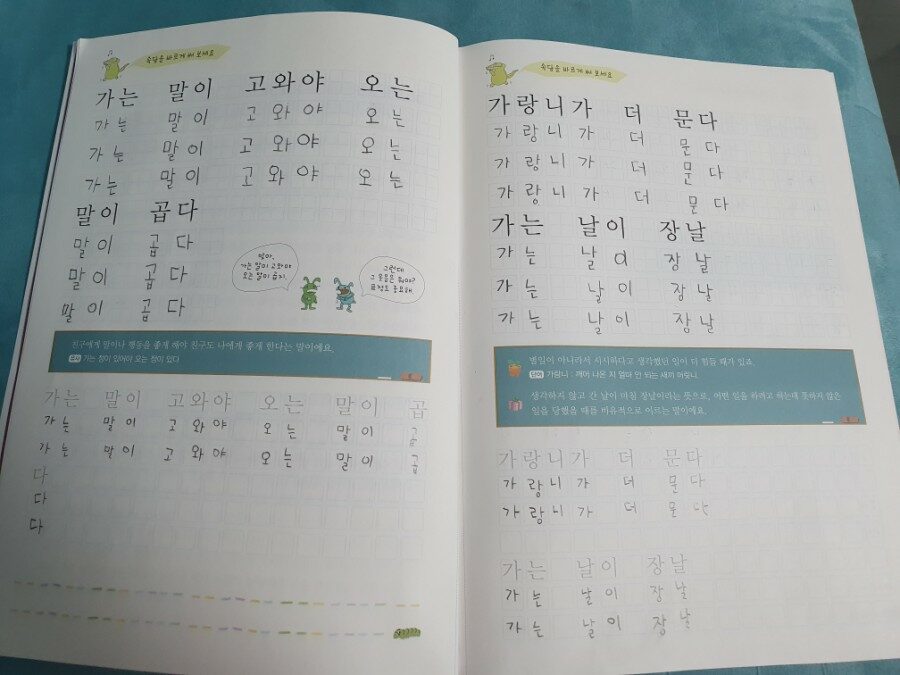 속담을 바르게 써 보세요
가는 말이 고와야 오는
가는 말이 고와야 오는
가는 말이 고와야 오는
가는 말이 고와야 오는
말이 곱다
말이 곱다
말이 곱다
말이 곱다
맞아,
가는 말이 고와야
오는 말이 곱지.
그런데
그 옷들은 뭐야?
표정도 중요해
친구에게 말이나 행동을 좋게 해야 친구도 나에게 좋게 한다는 말이에요.
가는 정이 있어야 오는 정이 있다
가는 말이 고와야 오는 말이 곱
가는 말이 고와야 오는 말이 곱
가는 말이 고와야 오는 말이 곱
다
다
다
속담을 바르게 써 보세요
가랑니가 더 문다
가랑니가 더 문다
가랑니가 더 문다
가랑니가 더 문다
가는 날이 장날
가는 날이 장날
가는 날이 장날
가는 날이 장날
별일이 아니라서 시시하다고 생각했던 일이 더 힘들 때가 있죠.
단어 가랑니 : 깨어 나온 지 얼마 안 되는 새끼 머릿니
생각하지 않고 간 날이 마침 장날이라는 뜻으로, 어떤 일을 하려고 하는데 뜻하지 않은
일을 당했을 때를 비유적으로 이르는 말이에요.
가랑니가 더 문다
가랑니가 더 문다
가랑니가 더 문다
가는 날이 장날
가는 날이 장날
가는 날이 장날